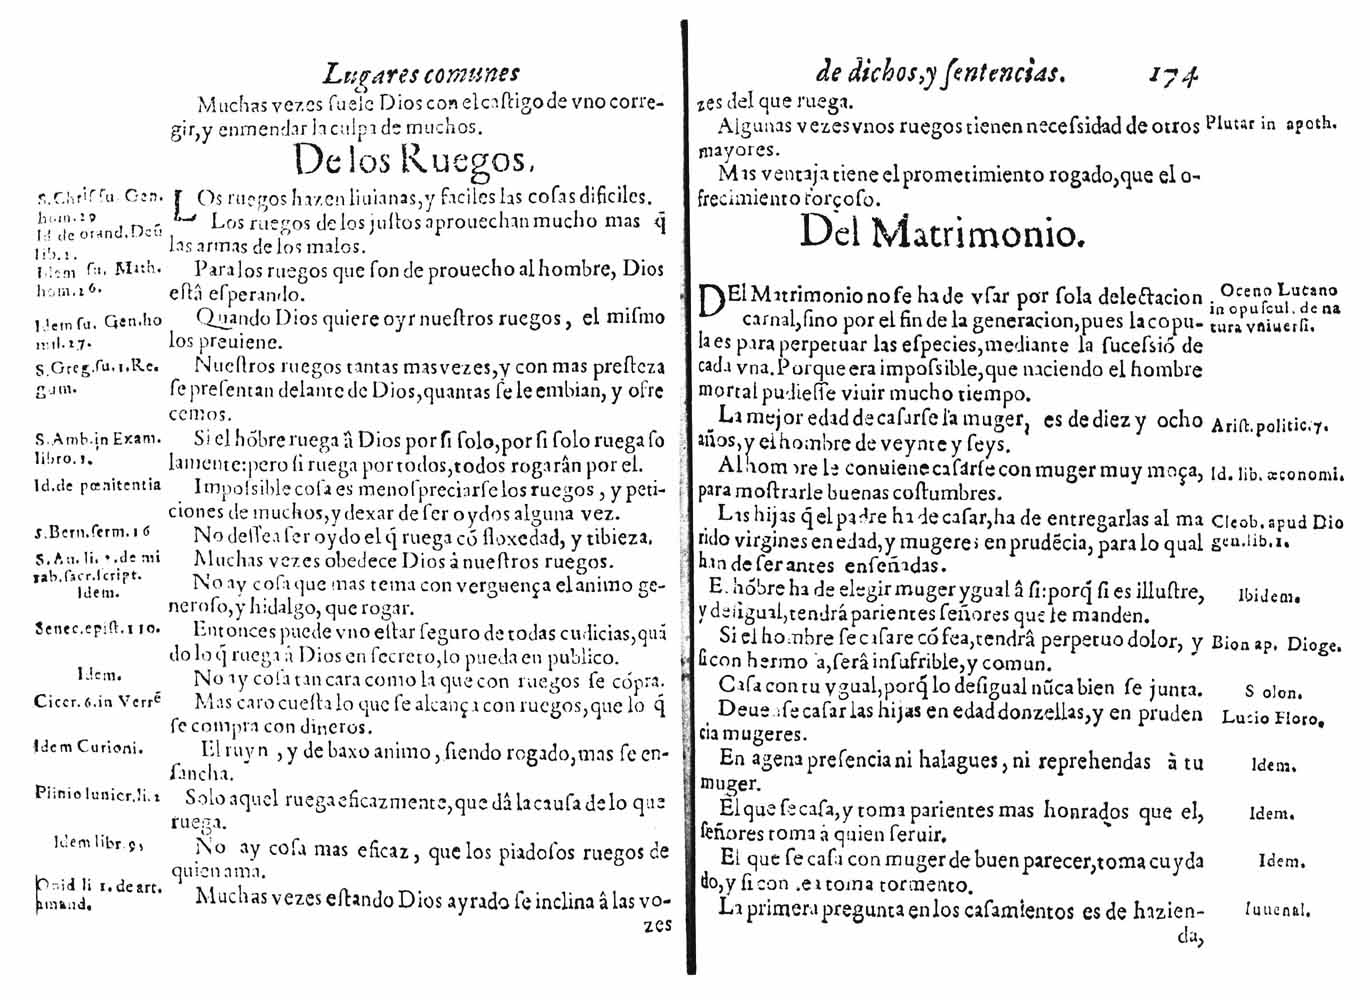 Lugares comunes
Muchas vezes suele Dios con el castigo de vno corre-
gir, y enmendar la culpa de muchos.
De los Ruegos.
S. Chris. su. Gen.
hom. 29
Id de orand. Deũ
lib. 1.
Idem su. Math.
hom. 26.
Idem su. Gen. ho
mil. 27.
S. Greg. su. 1. Re.
gum.
S. Amb. in Exam.
libro. 1.
Id. de pœnitentia
s. Bern. serm. 16
S. Au. li. de mi
rab. sacr. script.
Idem.
Senec. epist. 110.
Idem.
Cicer. 6. in Verrẽ
Idem Curioni.
Plinio Iunior. li. 1
Idem libr. 9,
Ouid li 1. de art.
amand.
LOs ruegos hazen liuianas, y faciles las cosas dificiles.
Los ruegos de los justos aprouechan mucho mas q̃
las armas de los malos.
Para los ruegos que son de prouecho al hombre, Dios
estâ esperando.
Quando Dios quiere oyr nuestros ruegos, el mismo
los preuiene.
Nuestros ruegos tantas mas vezes, y con mas presteza
se presentan delante de Dios, quantas se le embian, y ofre
cemos.
Si el hõbre ruega â Dios por si solo, por si solo ruega so
lamente: pero si ruega por todos, todos rogarân por el.
Impossible cosa es menospreciarse los ruegos, y peti-
ciones de muchos, y dexar de ser oydos alguna vez.
No dessea ser oydo el q̃ ruega cõ floxedad, y tibieza.
Muchas vezes obedece Dios à nuestros ruegos.
No ay cosa que mas tema con verguença el animo ge-
neroso, y hidalgo, que rogar.
Entonces puede vno estar seguro de todas cudicias, quã
do lo q̃ ruega â Dios en secreto, lo pueda en publico.
No ay cosa tan cara como la que con ruegos se cõpra.
Mas caro cuesta lo que se alcança con ruegos, que lo q̃
se compra con dineros.
El ruyn, y de baxo animo, siendo rogado, mas se en-
sancha.
Solo aquel ruega eficazmente, que dâ la causa de lo que
ruega.
No ay cosa mas eficaz, que los piadosos ruegos de
quien ama.
Muchas vezes estando Dios ayrado se inclina â las vo-
zes
de dichos, y sentencias. 174
zes del que ruega.
Algunas vezes vnos ruegos tienen necessidad de otros
mayores.
Mas ventaja tiene el prometimiento rogado, que el o-
frecimiento forçoso.
Plutar in apoth.
Del Matrimonio.
DEl Matrimonio no se ha de vsar por sola delectacion
carnal, sino por el fin de la generacion, pues la copu-
la es para perpetuar las especies, mediante la sucessiõ de
cada vna. Porque era impossible, que naciendo el hombre
mortal pudiesse viuir mucho tiempo.
La mejor edad de casarse la muger, es de diez y ocho
años, y el hombre de veynte y seys.
Al hombre le conuiene casarse con muger muy moça,
para mostrarle buenas costumbres.
Las hijas q̃ el padre ha de casar, ha de entregarlas al ma
rido virgines en edad, y mugeres en prudẽcia, para lo qual
han de ser antes enseñadas.
E. hõbre ha de elegir muger ygual â si: porq̃ si es illustre,
y desigual, tendrá parientes señores que le manden.
Si el hombre se casare cõ fea, tendrâ perpetuo dolor, y
si con hermosa, serâ insufrible, y comun.
Casa con tu ygual, porq̃ lo desigual nũca bien se junta.
Deuense casar las hijas en edad donzellas, y en pruden
cia mugeres.
En agena presencia ni halagues, ni reprehendas à tu
muger.
El que se casa, y toma parientes mas honrados que el,
señores toma à quien seruir.
El que se casa con muger de buen parecer, toma cuyda
do, y si con fea toma tormento.
La primera pregunta en los casamientos es de hazien-
da,
Oceno Lucano
in opuscul. de na
tura vniuersi.
Arist. politic. 7.
Id. lib. œconomi.
Cleob. apud Dio
gen. lib. 1.
Ibidem.
Bion ap. Dioge.
Solon.
Lucio Floro.
Idem.
Idem.
Idem.
Iuuenal.